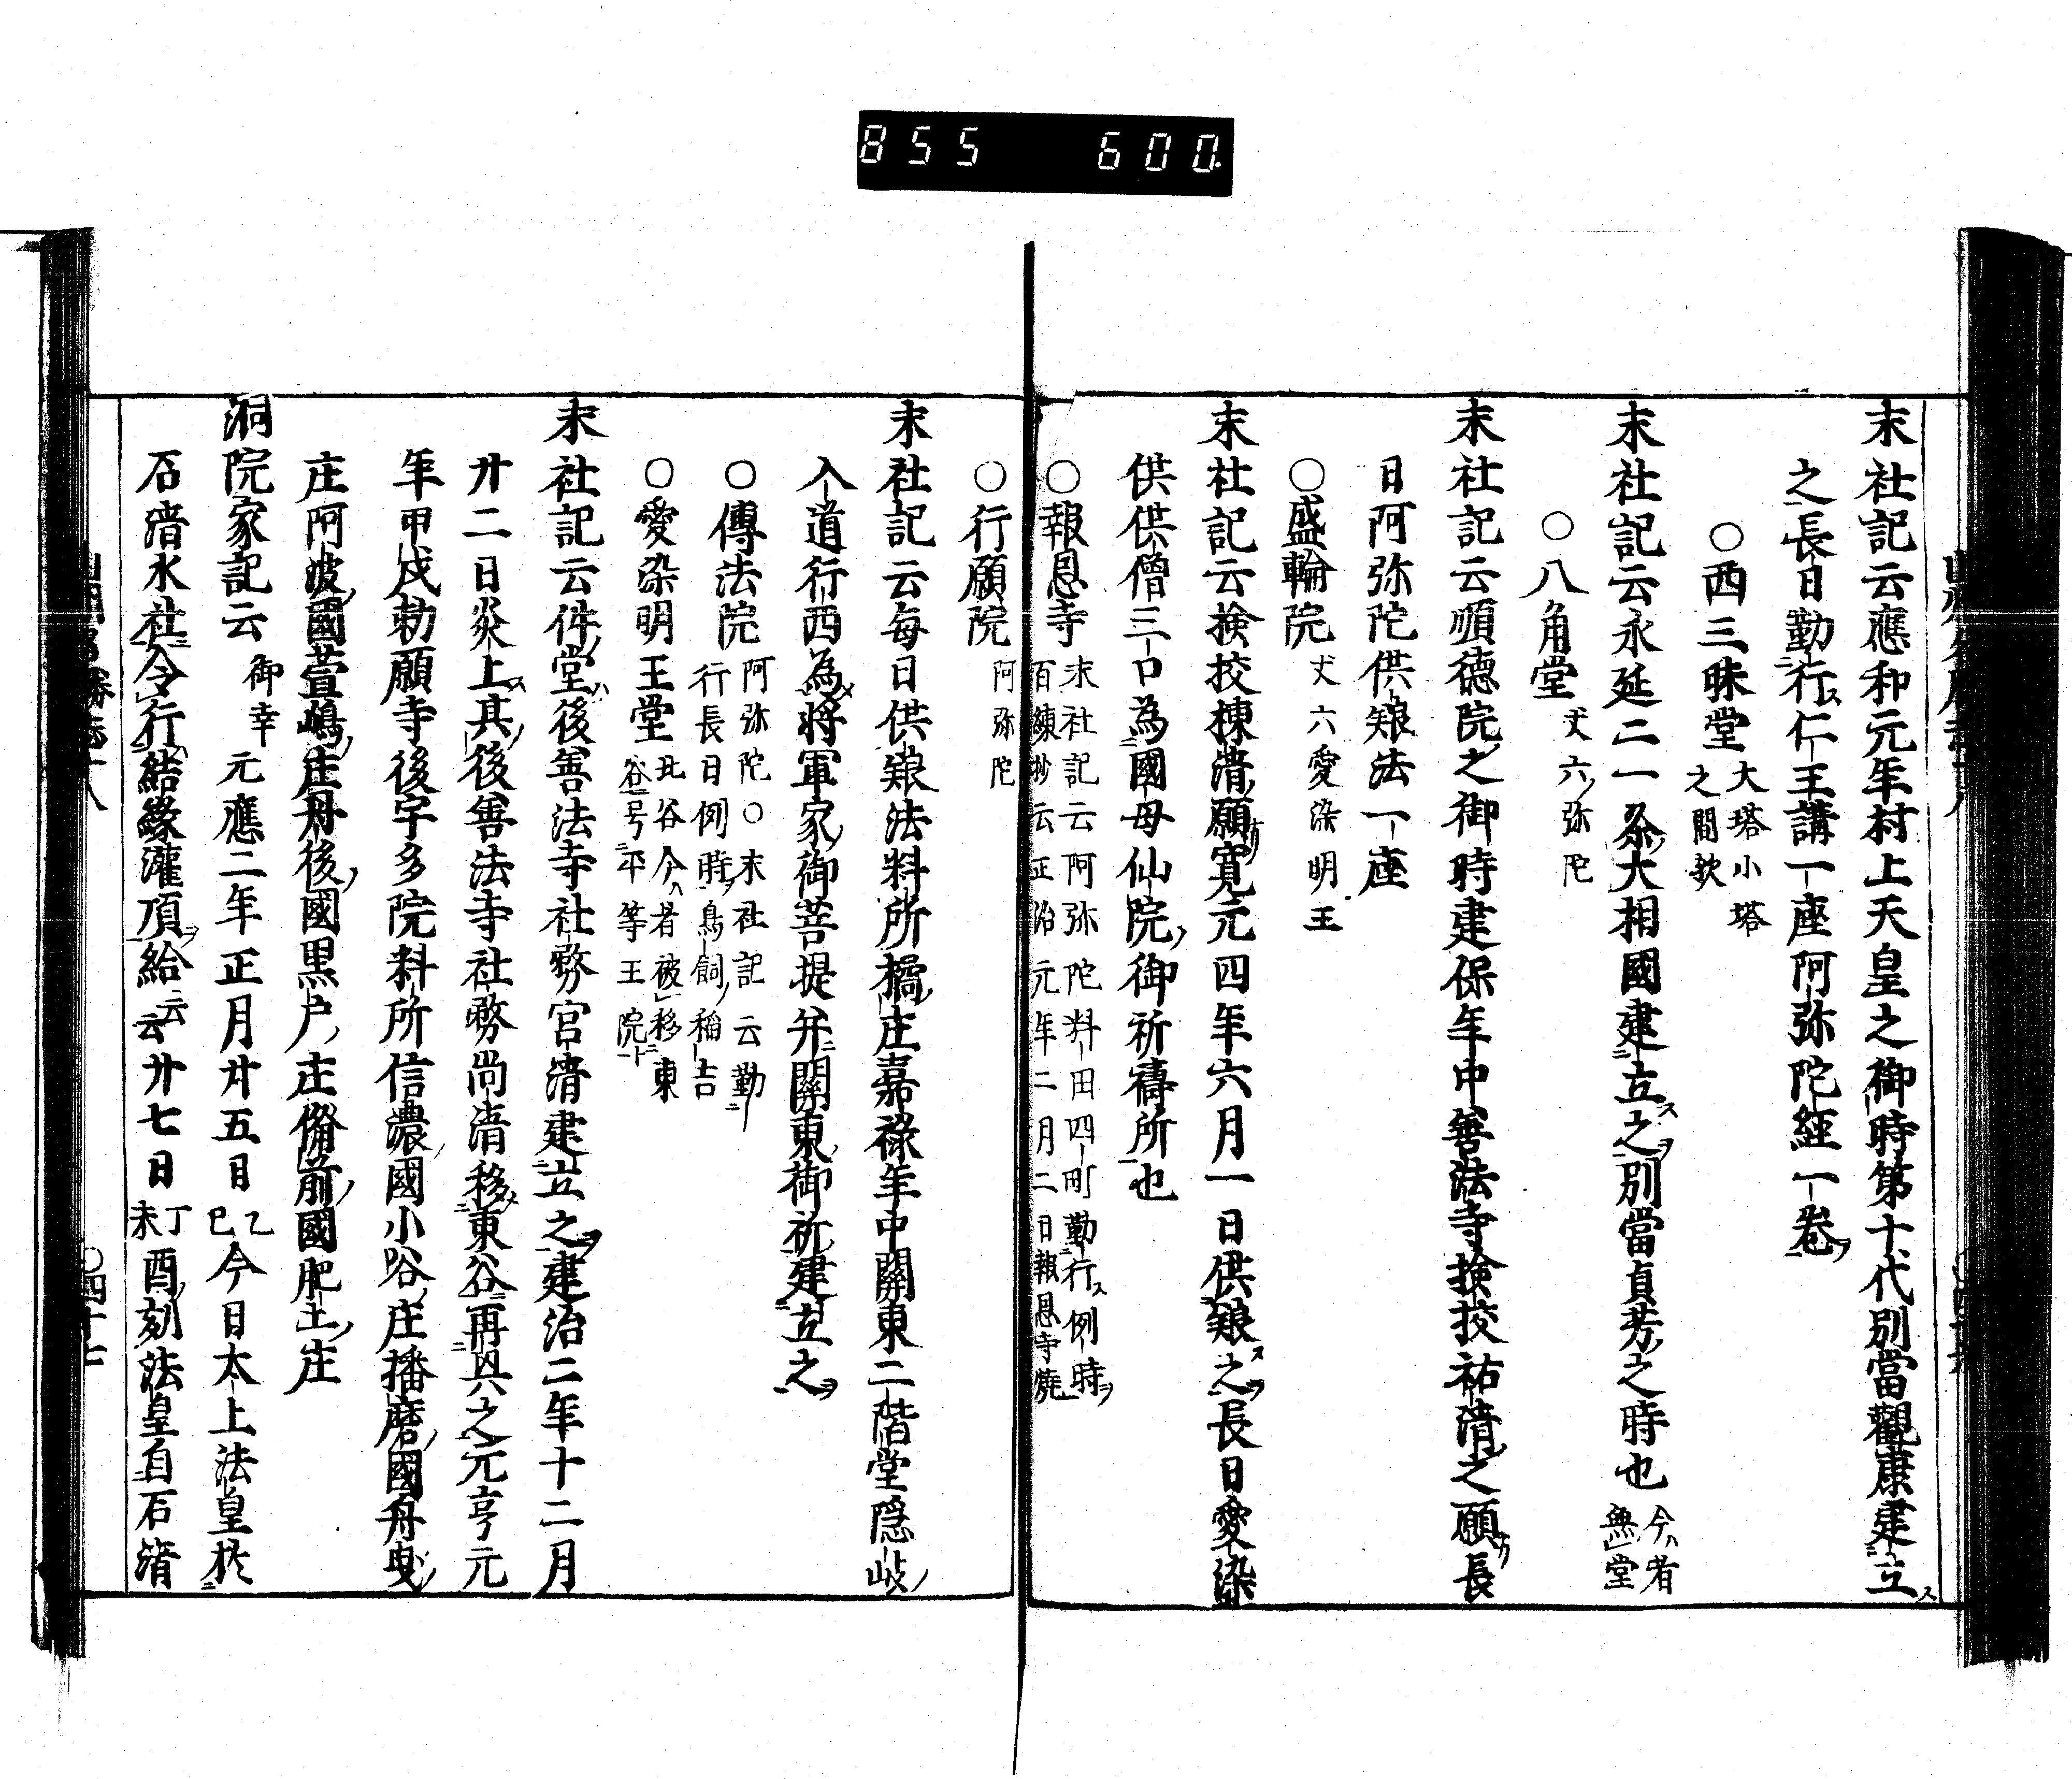 855 600.
末社記云應和元年村上天皇之御時第十代別當觀康建立ス
之長日勤行ス仁王講一座阿弥陀經一卷ヲ
○西三昧堂 大塔小塔
之間歟
末社記云永延二一条大相國建立ス之ヲ別當貞芳之時也 今ハ者
無堂
○八角堂 丈六ノ弥陀
末社記云順德院之御時建保年中善法寺檢挍祐清之願長
日阿弥陀供粮法一座
○盛輪院 丈六愛染明王
末社記云檢挍棟清願寛元四年六月一日供粮ス之ヲ長日愛染
供供僧三口為國母仙院ノ御祈禱所也
○報恩寺 末社記云阿弥陀料田四町勤行ス例時ヲ
百練抄云正治元年二月二日報恩寺燒
○行願院 阿弥陀
末社記云每日供粮法料所橘庄嘉祿年中關東二階堂隠岐ノ
入道行西為將軍家御菩提并關東御祈建立之ヲ
○傳法院 阿弥陀○末社記云勤
行長日例時ヲ鳥飼ノ稲吉
○愛染明王堂 北谷今ハ者被移東
谷号平等王院
末社記云件堂ハ後善法寺社務宮清建立之ヲ建治二年十二月
廿二日炎上ス其後善法寺社務尚清移東谷再興之元亨元
年甲戌勅願寺後宇多院料所信濃國小谷庄播磨國舟曳
庄阿波國萱嶋庄丹後國黒戸庄備前國肥土庄
洞院家記云 御幸 元應二年正月廿五日 乙
巳 今日太上法皇於
石清水社令行結縁灌頂給云云廿七日 丁
未 酉刻法皇自石清
○四十七